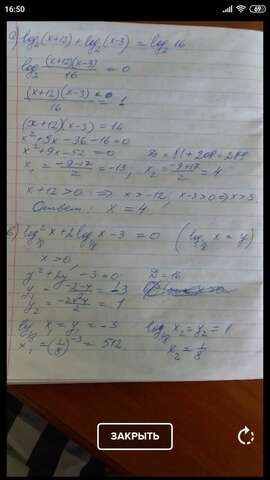 16:50
а) log₂(x+12)+log₂(x-3) = log₂ 16
log₂ (x+12)(x-3)/16 = 0
(x+12)(x-3)/16 = 1
(x+12)(x-3) = 16
x²+9x-36-16=0
x²+9x-52=0 D=81+208=289
x₁ = (-9-17)/2 = -13, x₂ = (-9+17)/2 = 4
x+12>0 => x>-12, x-3>0 => x>3
Ответ: x = 4
log²₁/₈ x + 2log₁/₈ x - 3 = 0 (log₁/₈ x = y)
x>0
y²+2y-3=0 D=16
y₁ = (-2-4)/2 = -3
y₂ = (-2+4)/2 = 1
log₁/₈ x₁ = y₁ = -3 log₁/₈ x₂ = y₂ = 1
x₁ = (1/8)⁻³ = 512 x₂ = 1/8
ЗАКРЫТЬ